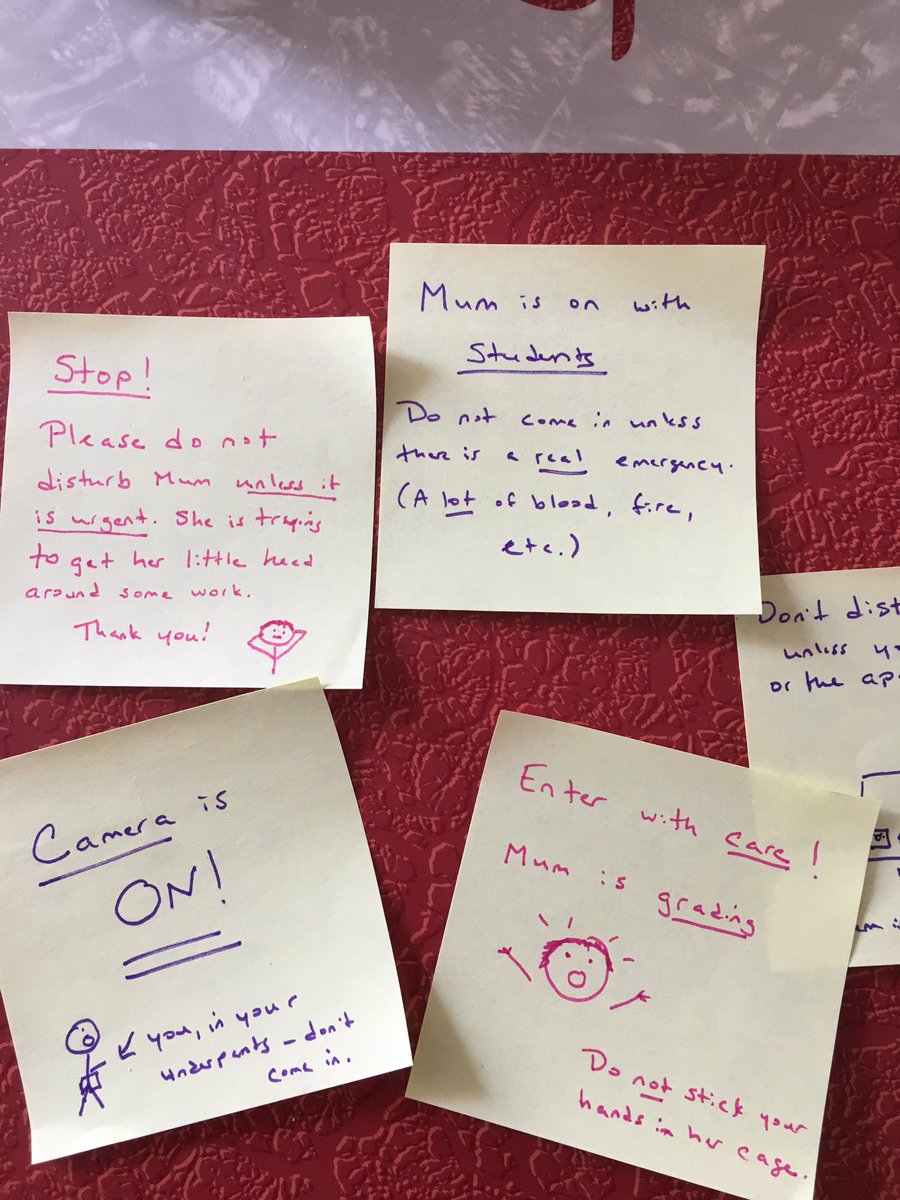 Stop!
Please do not
disturb Mum unless it
is urgent. She is trying
to get her little head
around some work.
Thank you!
Mum is on with
Students
Do not come in unless
there is a real emergency.
(A lot of blood, fire,
etc.)
Don't
unless
or the
Camera is
ON!
you, in your
underpants – don't
come in.
Enter with care!
Mum is grading
Do not stick your
hands in her cage.